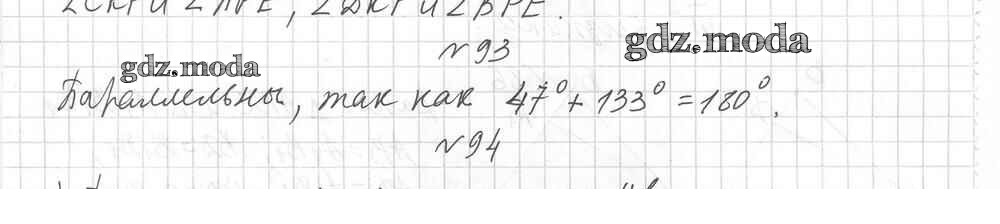 ∠СКР и ∠АРЕ, ∠DКР и ∠ВРЕ.
№93
gdz.moda
gdz.moda
Параллельны, так как 47° + 133° = 180°.
№94